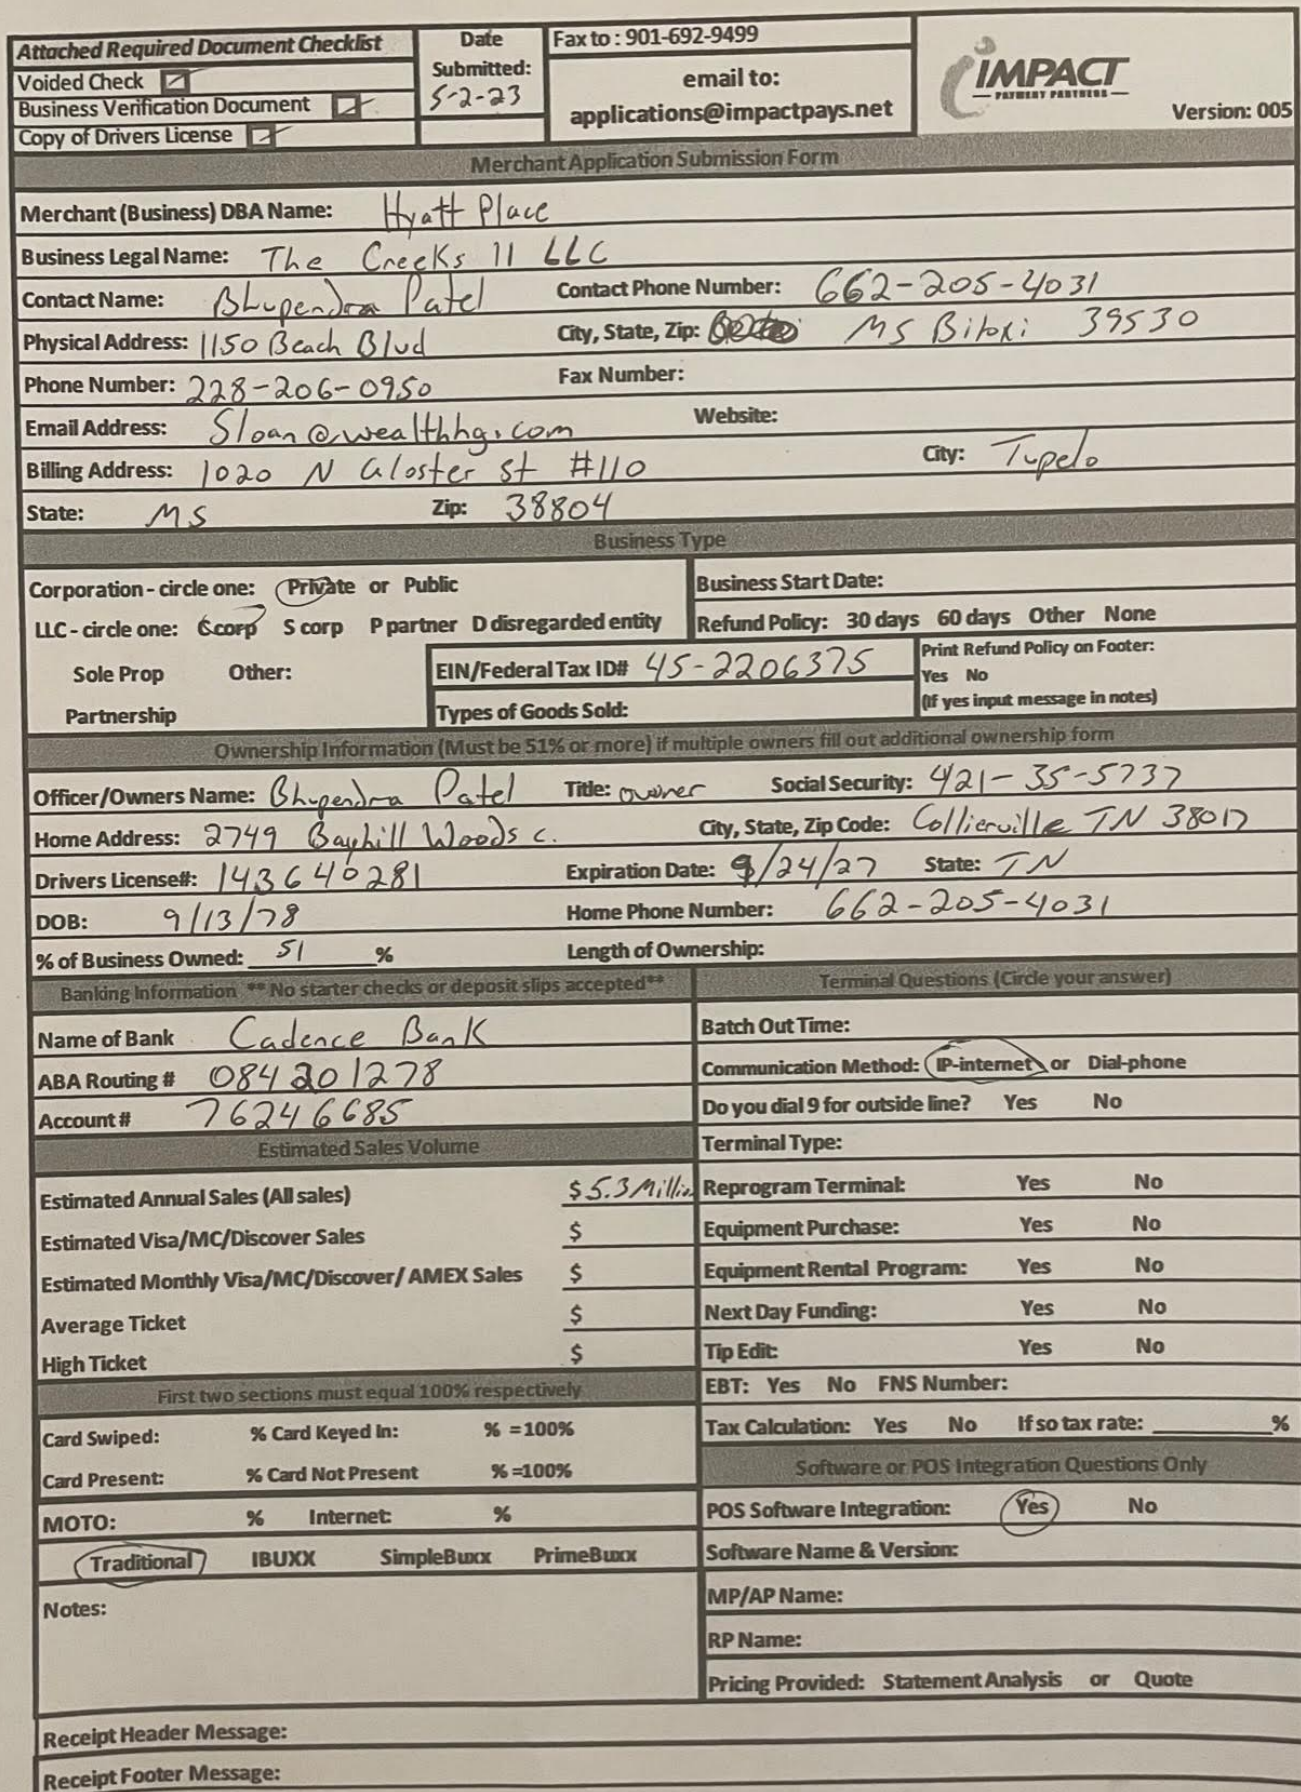 Attached Required Document Checklist
Voided Check
Business Verification Document
Copy of Drivers License
Date Submitted:
5-2-23
Fax to : 901-692-9499
email to:
applications@impactpays.net
IMPACT
PAYMENT PARTNERS
Version: 005
Merchant Application Submission Form
Merchant (Business) DBA Name: Hyatt Place
Business Legal Name: The Creeks 11 LLC
Contact Name: Bhupendra Patel Contact Phone Number: 662-205-4031
Physical Address: 1150 Beach Blvd City, State, Zip: MS Biloxi 39530
Phone Number: 228-206-0950 Fax Number:
Email Address: Sloan@wealthhg.com Website:
Billing Address: 1020 N Gloster St #110 City: Tupelo
State: MS Zip: 38804
Business Type
Corporation - circle one: Private or Public Business Start Date:
LLC - circle one: C corp S corp P partner D disregarded entity Refund Policy: 30 days 60 days Other None
Sole Prop Other: EIN/Federal Tax ID# 45-2206375 Print Refund Policy on Footer:
Yes No
(If yes input message in notes)
Partnership Types of Goods Sold:
Ownership Information (Must be 51% or more) if multiple owners fill out additional ownership form
Officer/Owners Name: Bhupendra Patel Title: owner Social Security: 421-35-5737
Home Address: 2749 Bayhill Woods c. City, State, Zip Code: Collierville TN 38017
Drivers License#: 143640281 Expiration Date: 9/24/27 State: TN
DOB: 9/13/78 Home Phone Number: 662-205-4031
% of Business Owned: 51 % Length of Ownership:
Banking Information ** No starter checks or deposit slips accepted**
Name of Bank Cadence Bank
ABA Routing # 084201278
Account # 76246685
Estimated Sales Volume
Estimated Annual Sales (All sales) $ 5.3 Million
Estimated Visa/MC/Discover Sales $
Estimated Monthly Visa/MC/Discover/ AMEX Sales $
Average Ticket $
High Ticket $
First two sections must equal 100% respectively
Card Swiped: % Card Keyed In: % =100%
Card Present: % Card Not Present % =100%
MOTO: % Internet: %
Traditional IBUXX SimpleBuxx PrimeBuxx
Notes:
Terminal Questions (Circle your answer)
Batch Out Time:
Communication Method: IP-internet or Dial-phone
Do you dial 9 for outside line? Yes No
Terminal Type:
Reprogram Terminal: Yes No
Equipment Purchase: Yes No
Equipment Rental Program: Yes No
Next Day Funding: Yes No
Tip Edit: Yes No
EBT: Yes No FNS Number:
Tax Calculation: Yes No If so tax rate: %
Software or POS Integration Questions Only
POS Software Integration: Yes No
Software Name & Version:
MP/AP Name:
RP Name:
Pricing Provided: Statement Analysis or Quote
Receipt Header Message:
Receipt Footer Message: